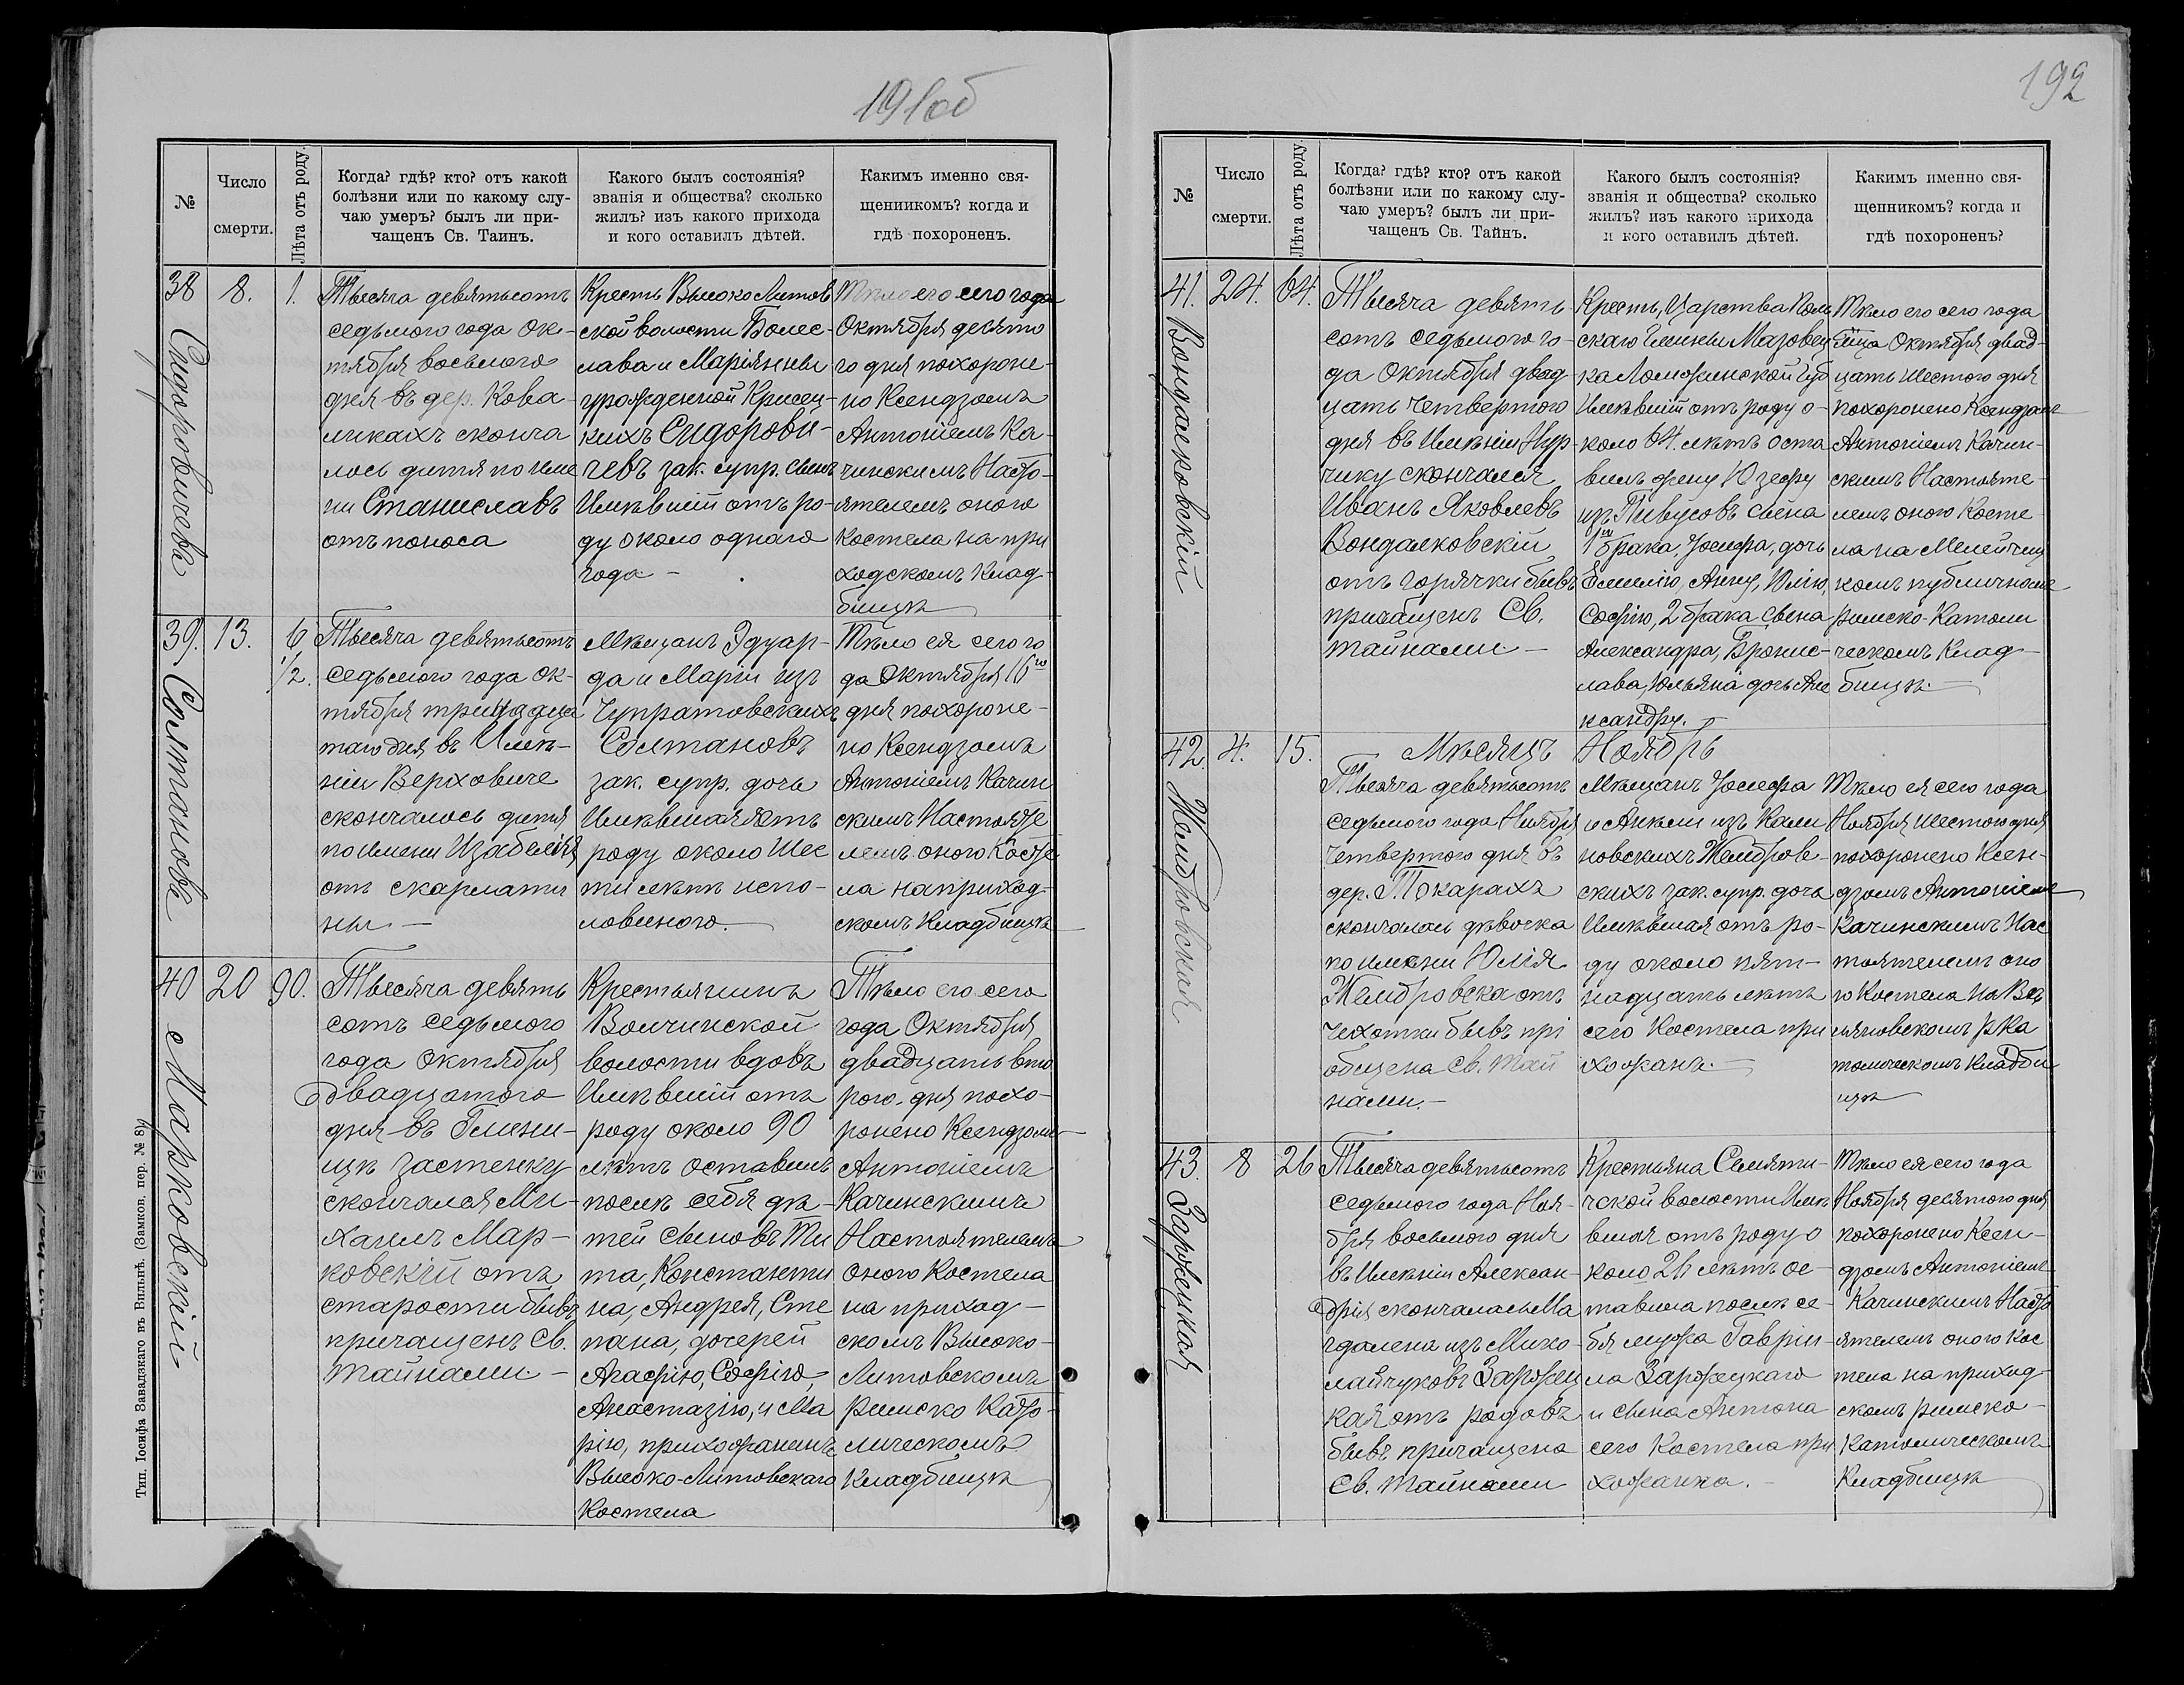 191об
№
Число
смерти.
Лѣта отъ роду.
Когда? гдѣ? кто? отъ какой
болѣзни или по какому слу-
чаю умеръ? былъ ли при-
чащенъ Св. Таинъ.
Какого былъ состоянія?
званія и общества? сколько
жилъ? изъ какого прихода
и кого оставилъ дѣтей.
Какимъ именно свя-
щенникомъ? когда и
гдѣ похороненъ.
38
8.
1.
Сидоровичева
Тысяча девятьсотъ
седьмого года Ок-
тября восьмого
дня въ дер. Кова-
ликахъ сконча
лось дитя по име
ни Станиславъ
отъ поноса
Крестъ Высоко Литов
ской волости Болес-
лава и Маріянны
урожденной Крисец-
кихъ Сидорови-
чевъ зак. супр. сынъ
Имѣвшій отъ ро-
ду около одного
года -
Тѣло его сего года
Октября девято
го дня похороне-
но Ксендзомъ
Антоніемъ Ка-
чинскимъ Насто-
ятелемъ оного
Костела на при
ходскомъ Клад-
бищѣ
39.
13.
6
1/2.
Солтановъ
Тысяча девятьсотъ
седьмого года Ок-
тября тринадца
таго дня, въ Имѣ-
ніи Верховиче
скончалось дитя
по имени Изабелія
отъ скарлати
ны -
Мѣщанъ Эдуар-
да и Маріи изъ
Чупратовскихъ
Солтановъ
зак. супр. дочь
Имѣвшая отъ
роду около Шес
ти лѣтъ испо-
ловиного.
Тѣло ея сего го
да Октября 16го
дня похороне-
но Ксендзомъ
Антоніемъ Качин
скимъ Настояте
лемъ оного Косте
ла на приход-
скомъ Кладбищѣ
40
20
90.
Марковскій
Тысяча девять
сотъ седьмого
года Октября
двадцатого
дня въ
застенку
скончался Ми-
хаилъ Мар-
ковскій отъ
старости бывъ
причащенъ Св.
Тайнами. -
Крестьянинъ
Волчинской
волости вдовъ
Имѣвшій отъ
роду около 90
лѣтъ оставилъ
послѣ себя дѣ-
тей сыновъ Ти
та, Константи
на, Андрея, Сте
пана, дочерей
Агафію, Софію,
Анастазію, и Ма
рію, прихожанинъ
Высоко-Литовскаго
Костела
Тѣло его сего
года Октября
двадцать вто
рого дня похо-
ронено Ксендзомъ
Антоніемъ
Качинскимъ
Настоятелемъ
оного Костела
на приход-
скомъ Высоко-
Литовскомъ
Римско Като-
лическомъ
Кладбищѣ
Тип. Іосифа Завадзкаго въ Вильнѣ. (Замков. пер. № 8)
192
№
Число
смерти.
Лѣта отъ роду.
Когда? гдѣ? кто? отъ какой
болѣзни или по какому слу-
чаю умеръ? былъ ли при-
чащенъ Св. Тайнъ.
Какого былъ состоянія?
званія и общества? сколько
жилъ? изъ какого прихода
и кого оставилъ дѣтей.
Какимъ именно свя-
щенникомъ? когда и
гдѣ похороненъ?
41.
24.
64.
Вондалковскій
Тысяча девять
сотъ седьмого го-
да Октября двад-
цать четвертого
дня въ Имѣніи Нур-
чику скончался
Иванъ Яковлевъ
Вондалковскій
отъ горячки бывъ
пріобщенъ Св.
Тайнами. -
Крестъ, Царства Поль
скаго Гмины Мазовец
ка Ломжинской Губ
Имѣвшій отъ роду о-
коло 64. лѣтъ оста
вилъ жену Юзефу
изъ Пивусовъ сына
1го брака, Іосифа, дочь
Эмилію, Анну, Юлію,
Софію, 2 брака сына
Александра, Бронис-
лава, Юльяна дочь Але
ксандру. -
Тѣло его сего года
Октября двад-
цать шестого дня
похоронено Ксендзомъ
Антоніемъ Качин-
скимъ Настояте-
лемъ оного Косте-
ла на Мелейчиц
комъ публичномъ
римско-Католи
ческомъ Клад-
бищѣ. -
Мѣсяцъ Ноябрь
42.
4.
15.
Жембровская
Тысяча девятьсотъ
седьмого года Ноября
четвертого дня въ
дер. Токарахъ
скончалась дѣвочка
по имени Юлія
Жембровска отъ
чахотки бывъ прі
общена Св. Тай
нами. -
Мѣщанъ Іосифа
и Анели изъ Кали
новскихъ Жембров-
скихъ зак. супр. дочь
Имѣвшая отъ ро-
ду около пят-
надцать лѣтъ
сего Костела при
хожанъ. -
Тѣло ея сего года
Ноября шестого дня
похоронено Ксен-
дзомъ Антоніемъ
Качинскимъ Нас
тоятелемъ оно
го Костела на
р Ка
толическомъ Кладби
щѣ
43.
8
26
Заржецкая
Тысяча девятьсотъ
седьмого года Ноя-
бря восьмого дня
въ Имѣніи Алексан-
дрія скончалась Ма
гдалена изъ Мико-
лайчуковъ Заржец
кая отъ родовъ
бывъ причащена
Св. Тайнами
Крестьяна Семяти-
чской волости Имѣ
вшая отъ роду о
коло 26 лѣтъ ос-
тавила послѣ се-
бя мужа Гаврі-
ла Заржецкаго
и сына Антона
сего Костела при
хожанка. -
Тѣло ея сего года
Ноября девятого дня
похоронено Ксен-
дзомъ Антоніемъ
Качинскимъ Насто
ятелемъ оного Кос
тела на приход-
скомъ римско-
Католическомъ
Кладбищѣ